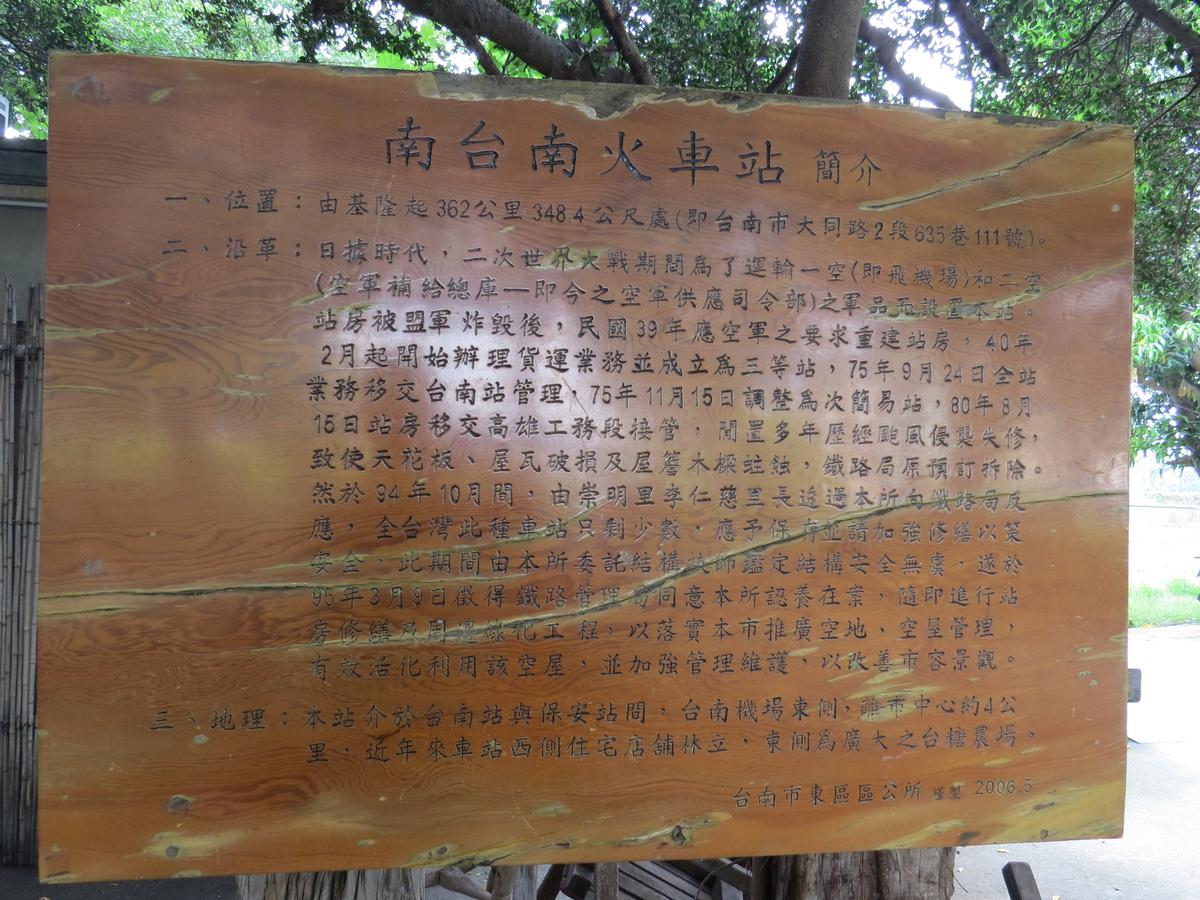 南台南火車站 簡介
一、位置：由基隆起362公里348.4公尺處(即台南市大同路2段635巷111號)。
二、沿革：日據時代，二次世界大戰期間為了運輸一空(即飛機場)和二空
(空軍補給總庫—即今之空軍供應司令部)之軍品而設置本站。
站房被盟軍炸毀後，民國39年應空軍之要求重建站房，40年
2月起開始辦理貨運業務並成立為三等站，75年9月24日全站
業務移交台南站管理，75年11月15日調整為次簡易站，80年8月
15日站房移交高雄工務段接管，閒置多年歷經颱風侵襲失修，
致使天花板、屋瓦破損及屋簷木樑蛀蝕，鐵路局原預訂拆除。
然於94年10月間，由崇明里李仁慈里長透過本所向鐵路局反
應，全台灣此種車站只剩少數，應予保存並請加強修繕以策
安全，此期間由本所委託結構技師鑑定結構安全無虞，遂於
95年3月9日徵得鐵路管理局同意本所認養在案，隨即進行站
房修繕及周邊綠化工程，以落實本市推廣空地、空屋管理，
有效活化利用該空屋，並加強管理維護，以改善市容景觀。
三、地理：本站介於台南站與保安站間，台南機場東側，離市中心約4公
里，近年來車站西側住宅店舖林立，東側為廣大之台糖農場。
台南市東區區公所 謹製 2006.5